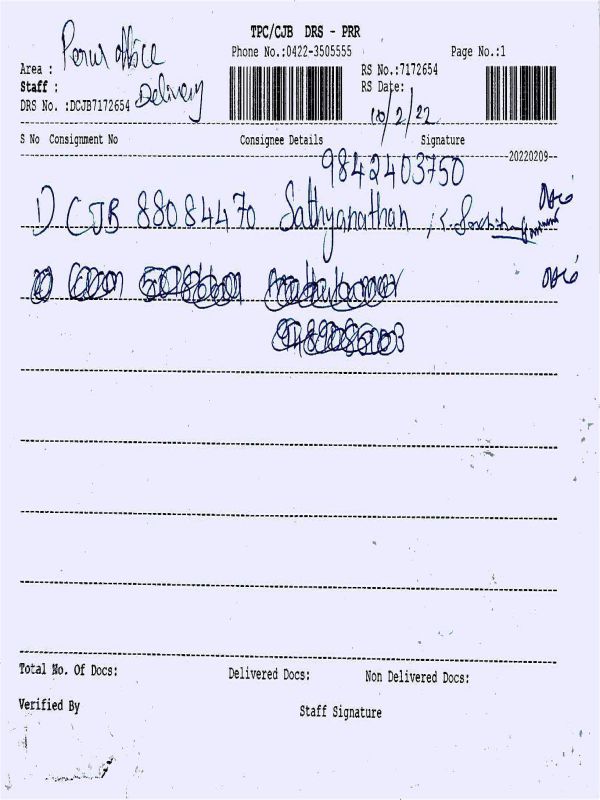 TPC/CJB DRS - PRR
Phone No.:0422-3505555 Page No.:1
Area : office
RS No.:7172654
Staff : Delivery
RS Date: 10/2/22
DRS No. :DCJB7172654
S No Consignment No Consignee Details Signature
20220209
9842403750
1) CJB 88084470 Sathyanathan
Total No. Of Docs: Delivered Docs: Non Delivered Docs:
Verified By
Staff Signature